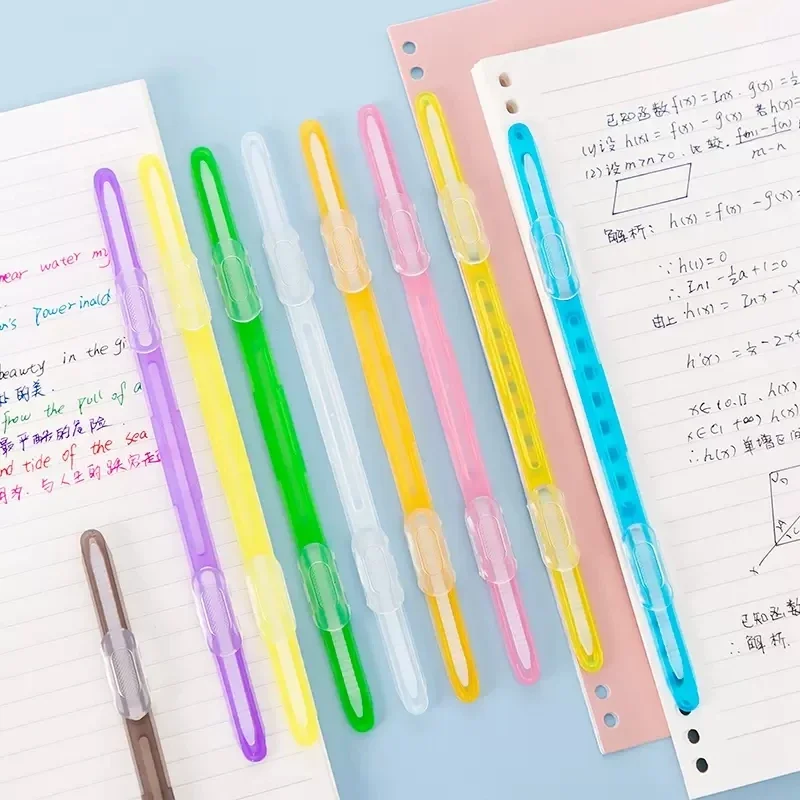 near water my
n's Powerinald
beauty in the gi
处的美.
from the pull of a
最平静的危险.
and tide of the sea
已知函数 f(x) = lnx. g(x) = ½
(1) 设 h(x) = f(x) - g(x) 若 h(x) =
(2) 设 m>n>0. 比较. f(m) - f(n) / m - n
解析: h(x) = f(x) - g(x) -
∵ h(1) = 0
∴ ln1 - ½a + 1 = 0
由上 h(x) = lnx - x
h'(x) = ½ - 2x
x∈(0.1]. h(x)
x∈(1 +∞) h(x)
∴ h(x) 单增区间
已知函数
∴ 解析.